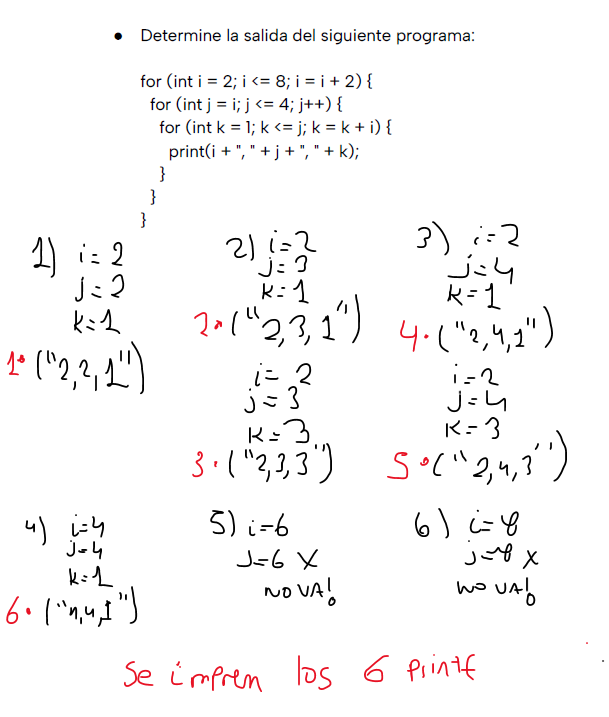 ● Determine la salida del siguiente programa:
for (int i = 2; i <= 8; i = i + 2) {
for (int j = i; j <= 4; j++) {
for (int k = 1; k <= j; k = k + i) {
print(i + ", " + j + ", " + k);
}
}
}
1) i= 2
j=2
k=1
1• ("2,2,1")
2) i=2
j=3
k=1
2• ("2,3,1")
i= 2
j= 3
k=3
3• ("2,3,3")
3) i=2
j=4
k=1
4• ("2,4,1")
i=2
j=4
k=3
5• ("2,4,3")
4) i=4
j=4
k=1
6• ("4,4,1")
5) i=6
J=6 X
NO VA!
6) i=8
j=8 X
NO VA!
Se impren los 6 printf